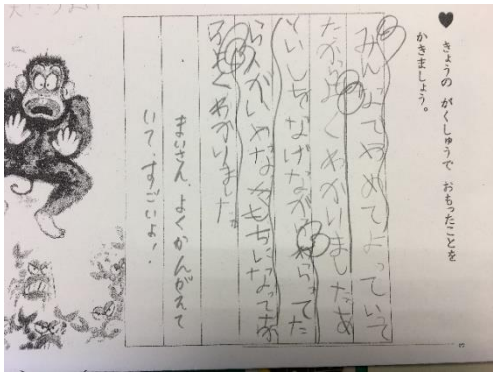 きょうの がくしゅうで おもったことを
かきましょう。
みんなでやめてよっていって
たからよくわかりましたあ
といしをなげながらわらってた
らかにがいやなきもちになってる
のもよくわかりました。
まいさん、よくかんがえて
いて、すごいよ!